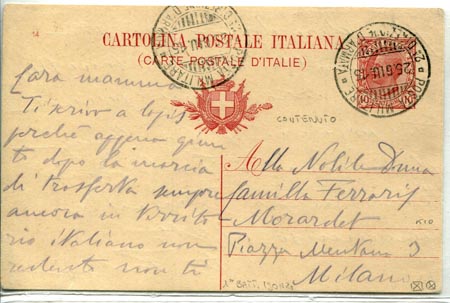 14
CARTOLINA POSTALE ITALIANA
(CARTE POSTALE D'ITALIE)
25.GIU.15
CONTENUTO
Cara mamma
Ti scrivo a lapis
perchè appena giun
ti dopo la marcia
di trasferta sempre
ancora in territo
rio italiano non
redento non ti
Alla Nobile Donna
Camilla Ferraris
Morardet
Piazza Mentana 3
Milano
1° BATT.